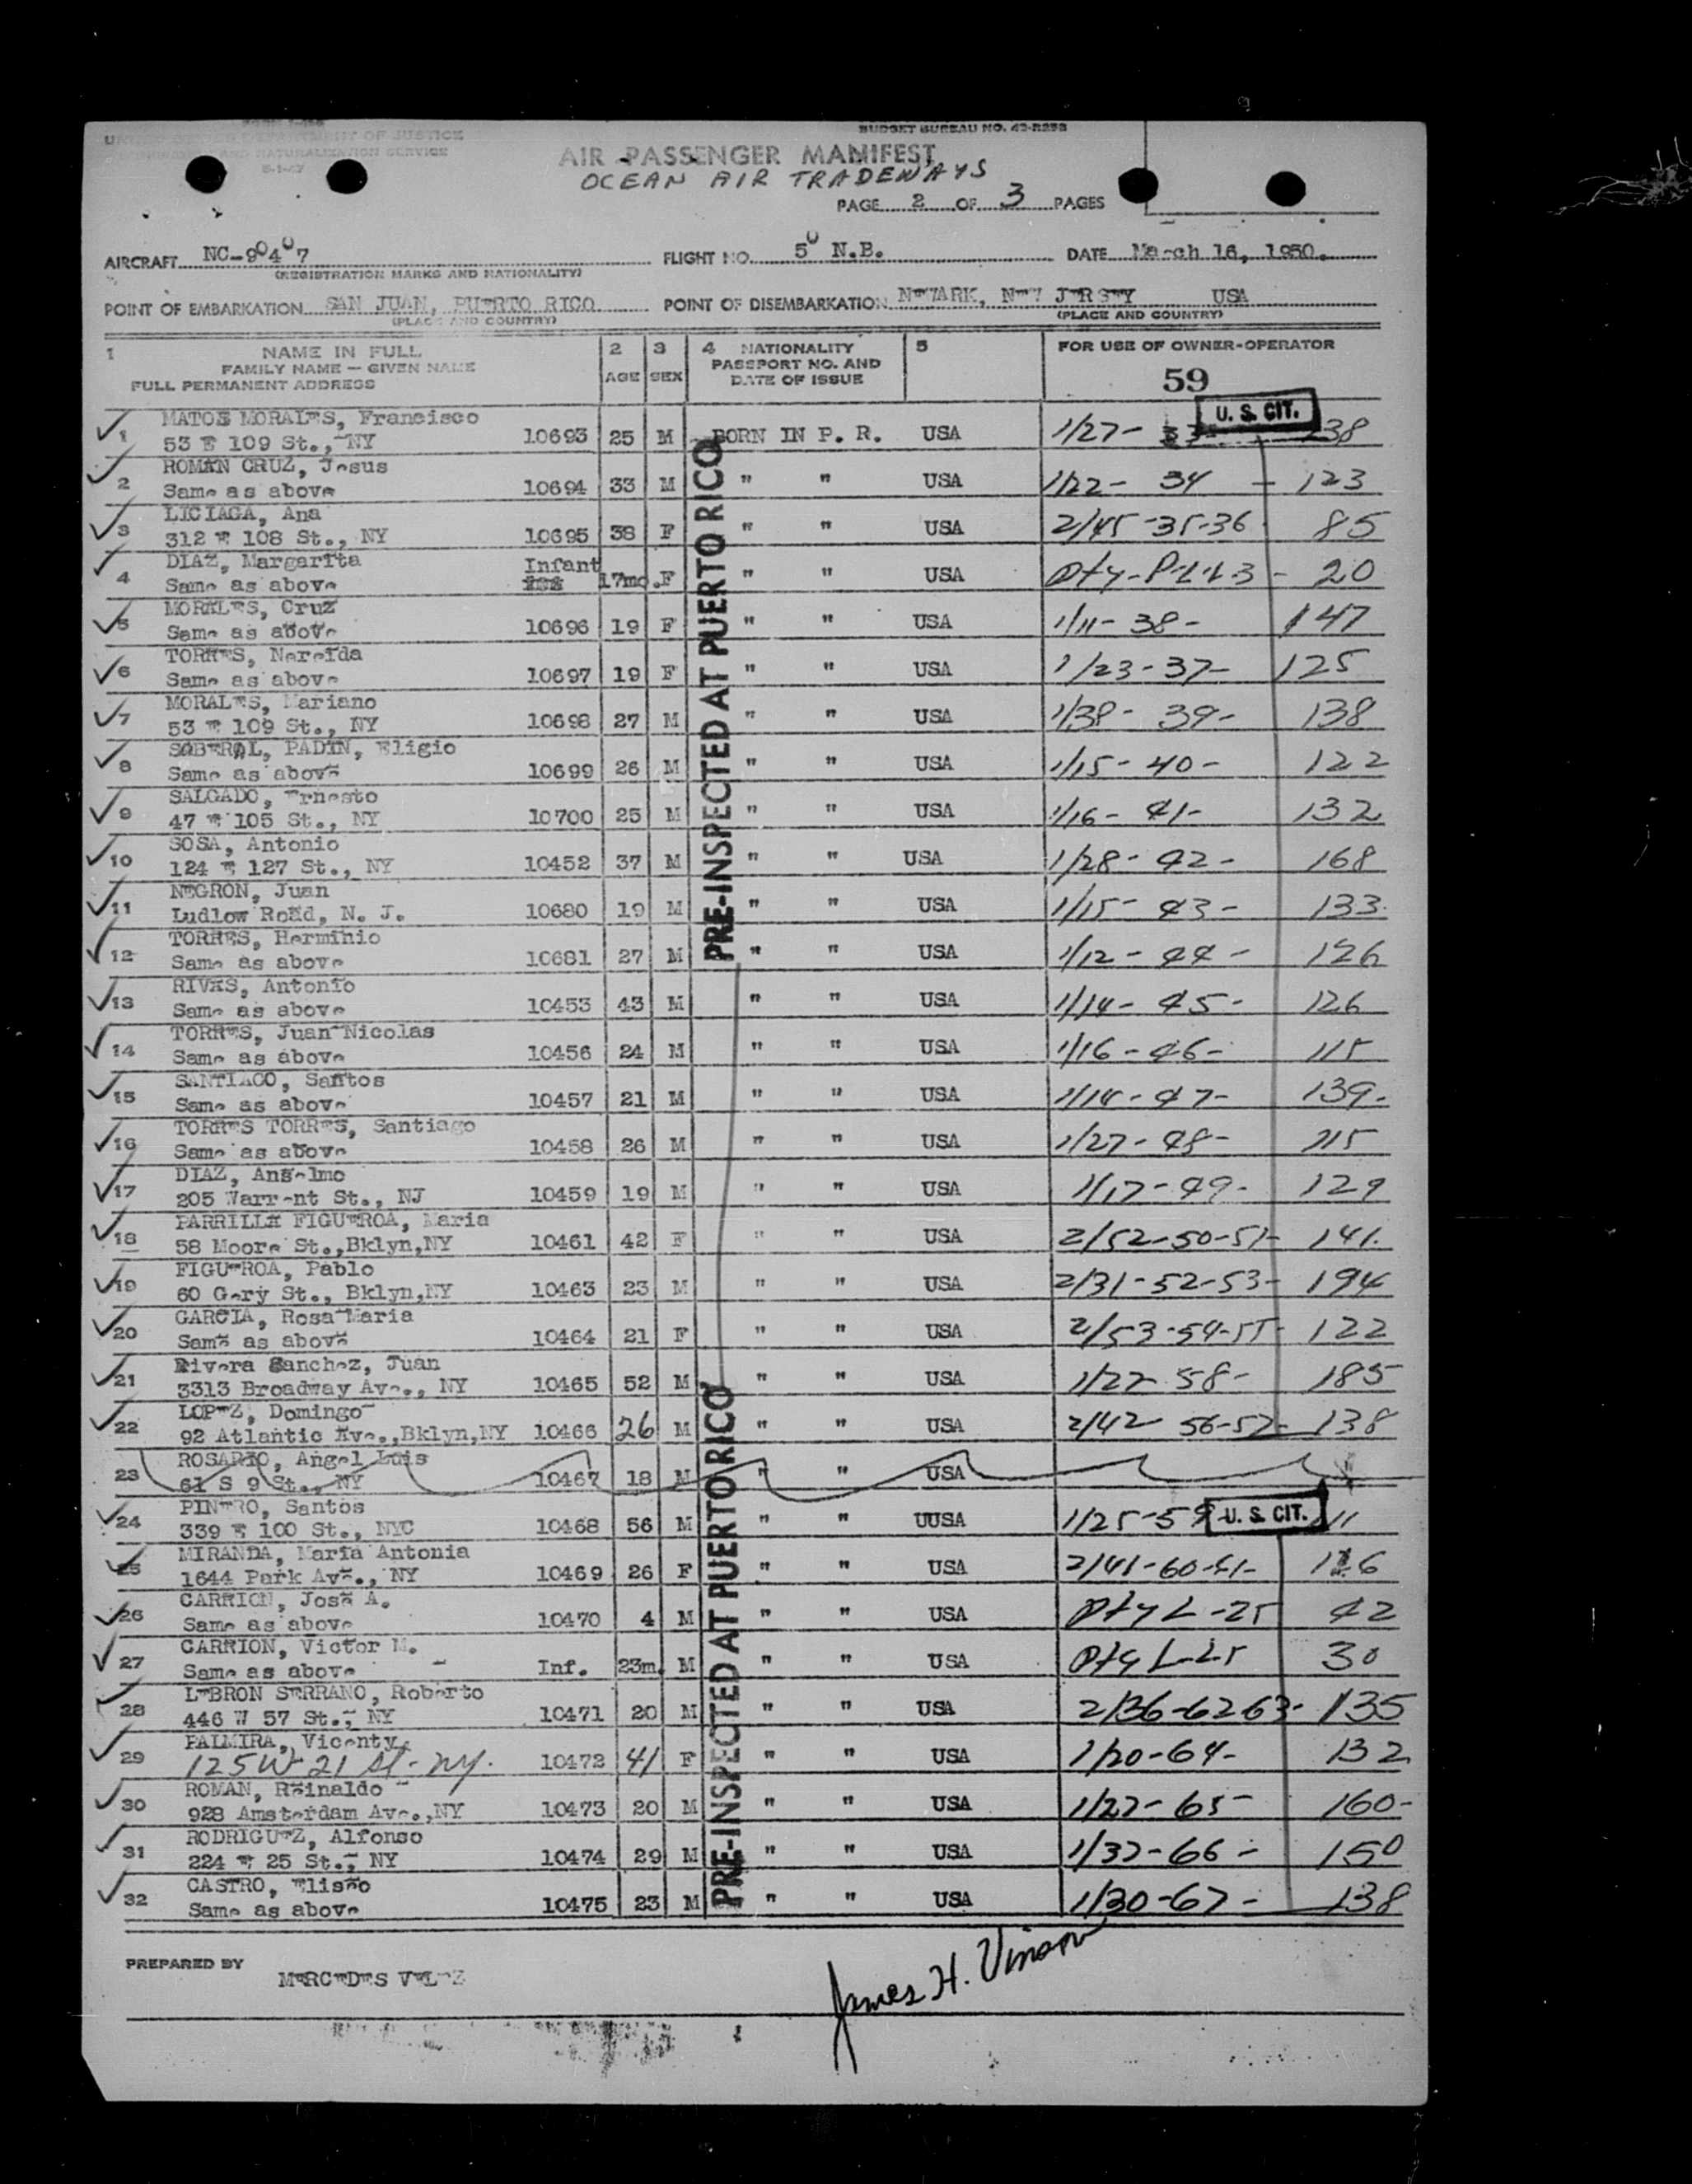 DEPARTMENT OF JUSTICE
AND NATURALIZATION SERVICE
BUDGET BUREAU NO. 43-R253
AIR PASSENGER MANIFEST
OCEAN AIR TRADEWAYS
PAGE 2 OF 3 PAGES
AIRCRAFT NC-90407 FLIGHT NO. 50 N.B. DATE March 16, 1950.
(REGISTRATION MARKS AND NATIONALITY)
POINT OF EMBARKATION SAN JUAN, PUERTO RICO POINT OF DISEMBARKATION NEWARK, NEW JERSEY USA
(PLACE AND COUNTRY) (PLACE AND COUNTRY)
1 NAME IN FULL 2 3 4 NATIONALITY 5 FOR USE OF OWNER-OPERATOR
FAMILY NAME — GIVEN NAME PASSPORT NO. AND
FULL PERMANENT ADDRESS AGE SEX DATE OF ISSUE 59
U. S. CIT.
PRE-INSPECTED AT PUERTO RICO
MATOS MORALES, Francisco
1 53 E 109 St., NY 10693 25 M BORN IN P. R. USA 1/27- 138
ROMAN CRUZ, Jesus
2 Same as above 10694 33 M " " USA 1/22- 34 - 123
LICIAGA, Ana
3 312 E 108 St., NY 10695 38 F " " USA 2/45-35-36 85
DIAZ, Margarita Infant
4 Same as above 17mo. F " " USA 20
MORALES, Cruz
5 Same as above 10696 19 F " " USA 1/11- 38- 147
TORRES, Nereida
6 Same as above 10697 19 F " " USA 1/23-37- 125
MORALES, Mariano
7 53 E 109 St., NY 10698 27 M " " USA 1/38- 39- 138
SOBERAL, PADIN, Eligio
8 Same as above 10699 26 M " " USA 1/15- 40- 122
SALGADO, Ernesto
9 47 E 105 St., NY 10700 25 M " " USA 1/16- 41- 132
SOSA, Antonio
10 124 E 127 St., NY 10452 37 M " " USA 1/28- 42- 168
NEGRON, Juan
11 Ludlow Road, N. J. 10680 19 M " " USA 1/15- 43- 133
TORRES, Herminio
12 Same as above 10681 27 M " " USA 1/12- 44- 126
RIVAS, Antonio
13 Same as above 10453 43 M " " USA 1/14- 45- 126
TORRES, Juan Nicolas
14 Same as above 10456 24 M " " USA 1/16-46- 115
SANTIAGO, Santos
15 Same as above 10457 21 M " " USA 1/14-47- 139-
TORRES TORRES, Santiago
16 Same as above 10458 26 M " " USA 1/27-48- 115
DIAZ, Anselmo
17 205 Warrent St., NJ 10459 19 M " " USA 1/17-49- 129
PARRILLA FIGUEROA, Maria
18 58 Moore St.,Bklyn,NY 10461 42 F " " USA 2/52-50-51- 141
FIGUEROA, Pablo
19 60 Gery St., Bklyn,NY 10463 23 M " " USA 2/31-52-53- 194
GARCIA, Rosa Maria
20 Same as above 10464 21 F " " USA 2/53-54-55- 122
Rivera Sanchez, Juan
21 3313 Broadway Ave., NY 10465 52 M " " USA 1/22 58- 185
LOPEZ, Domingo
22 92 Atlantic Ave.,Bklyn,NY 10466 26 M " " USA 2/42 56-57- 138
ROSARIO, Angel Luis
23 61 S 9 St., NY 10467 18 M " " USA
PRE-INSPECTED AT PUERTO RICO
PINERO, Santos
24 339 E 100 St., NYC 10468 56 M " " UUSA 1/25-59 U. S. CIT. 11
MIRANDA, Maria Antonia
25 1644 Park Ave., NY 10469 26 F " " USA 2/41-60-61- 126
CARRION, Jose A.
26 Same as above 10470 4 M " " USA Pty L-25 42
CARRION, Victor M.
27 Same as above Inf. 23m. M " " USA Pty L-25 30
LEBRON SERRANO, Roberto
28 446 W 57 St., NY 10471 20 M " " USA 2/36-6263- 135
PALMIRA, Vicenty
29 125 W 21 St - NY. 10472 41 F " " USA 1/20-64- 132
ROMAN, Reinaldo
30 928 Amsterdam Ave.,NY 10473 20 M " " USA 1/27-65- 160-
RODRIGUEZ, Alfonso
31 224 E 25 St., NY 10474 29 M " " USA 1/32-66- 150
CASTRO, Eliseo
32 Same as above 10475 23 M " " USA 1/30-67- 138
PREPARED BY
MERCEDES VELEZ
James H. Vinson